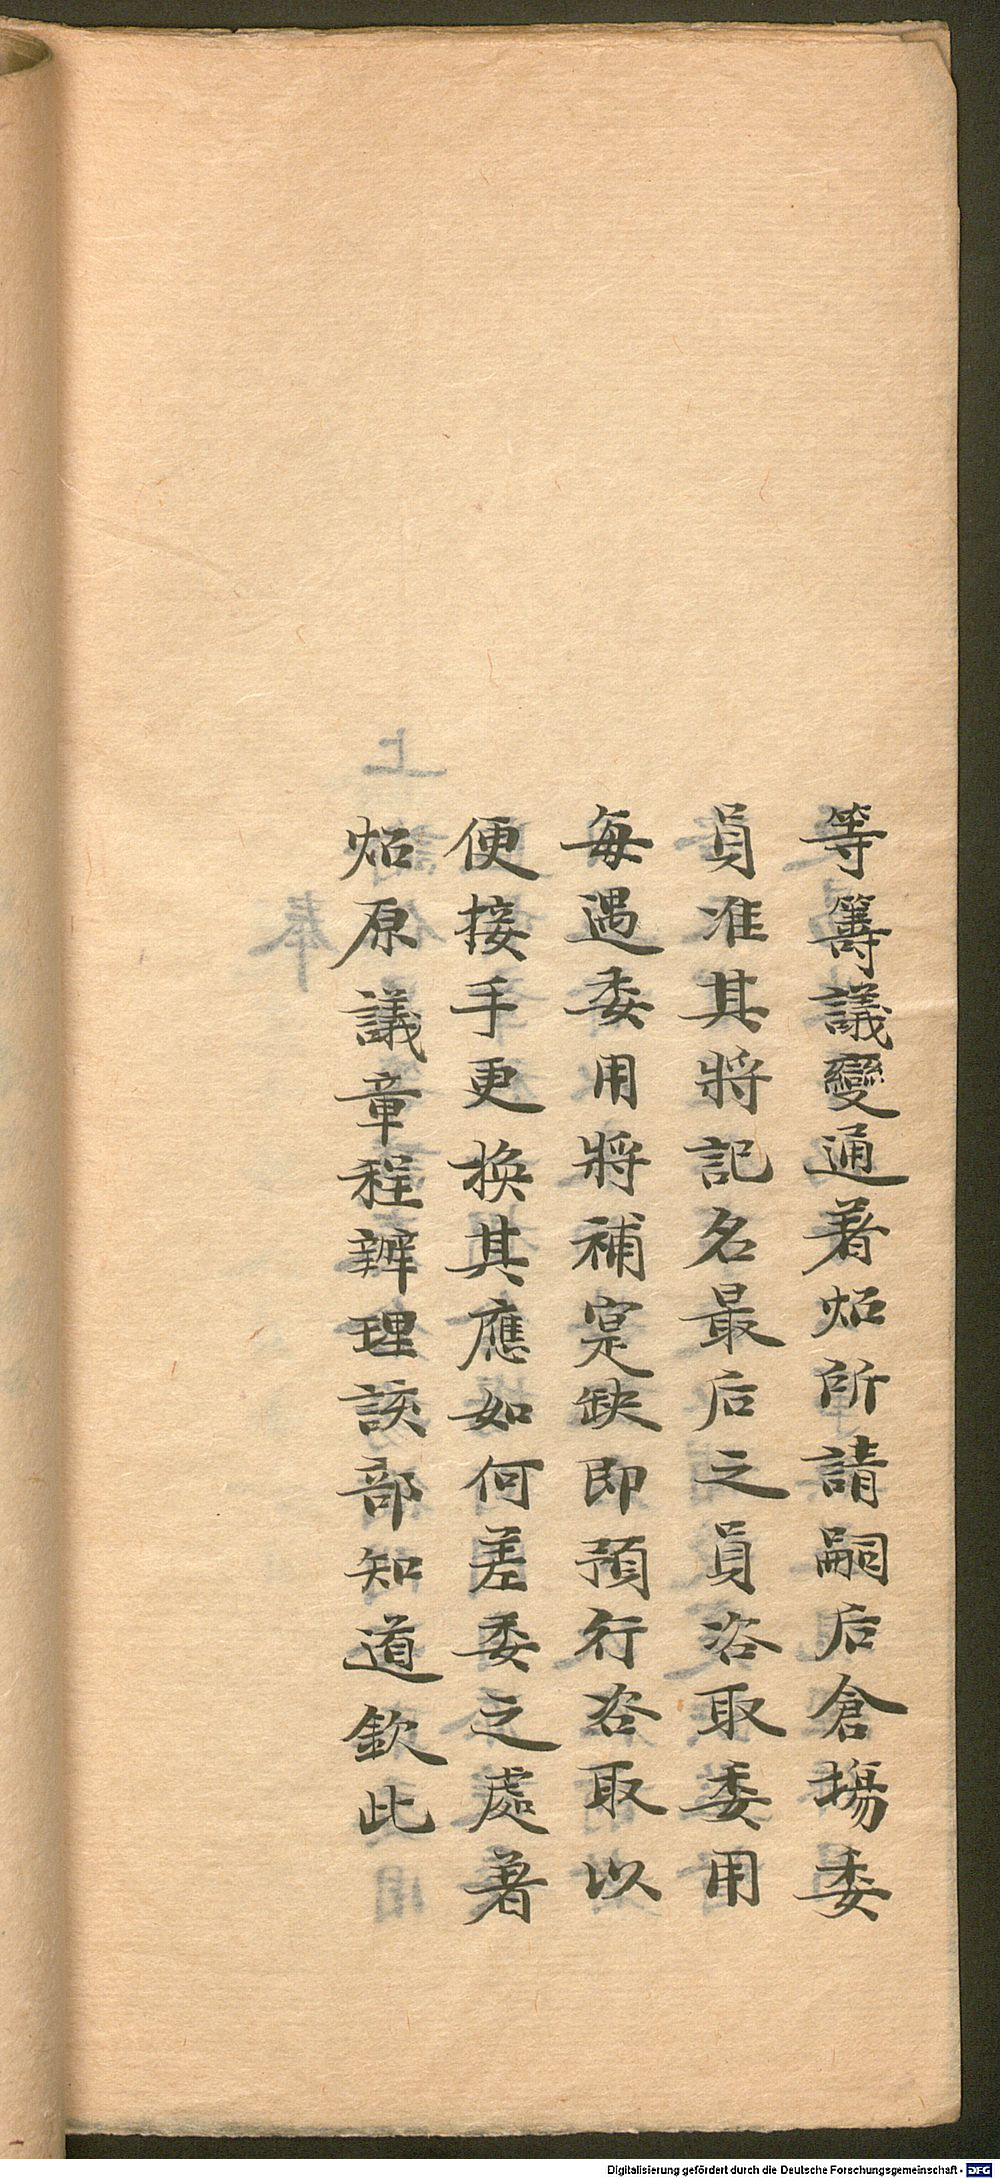 等籌議變通著炤所請嗣后倉塲委
員准其將記名最后之員咨取委用
每遇委用將補寔缺即預行咨取以
便接手更換其應如何差委之處著
炤原議章程辦理該部知道欽此
Digitalisierung gefördert durch die Deutsche Forschungsgemeinschaft - DFG